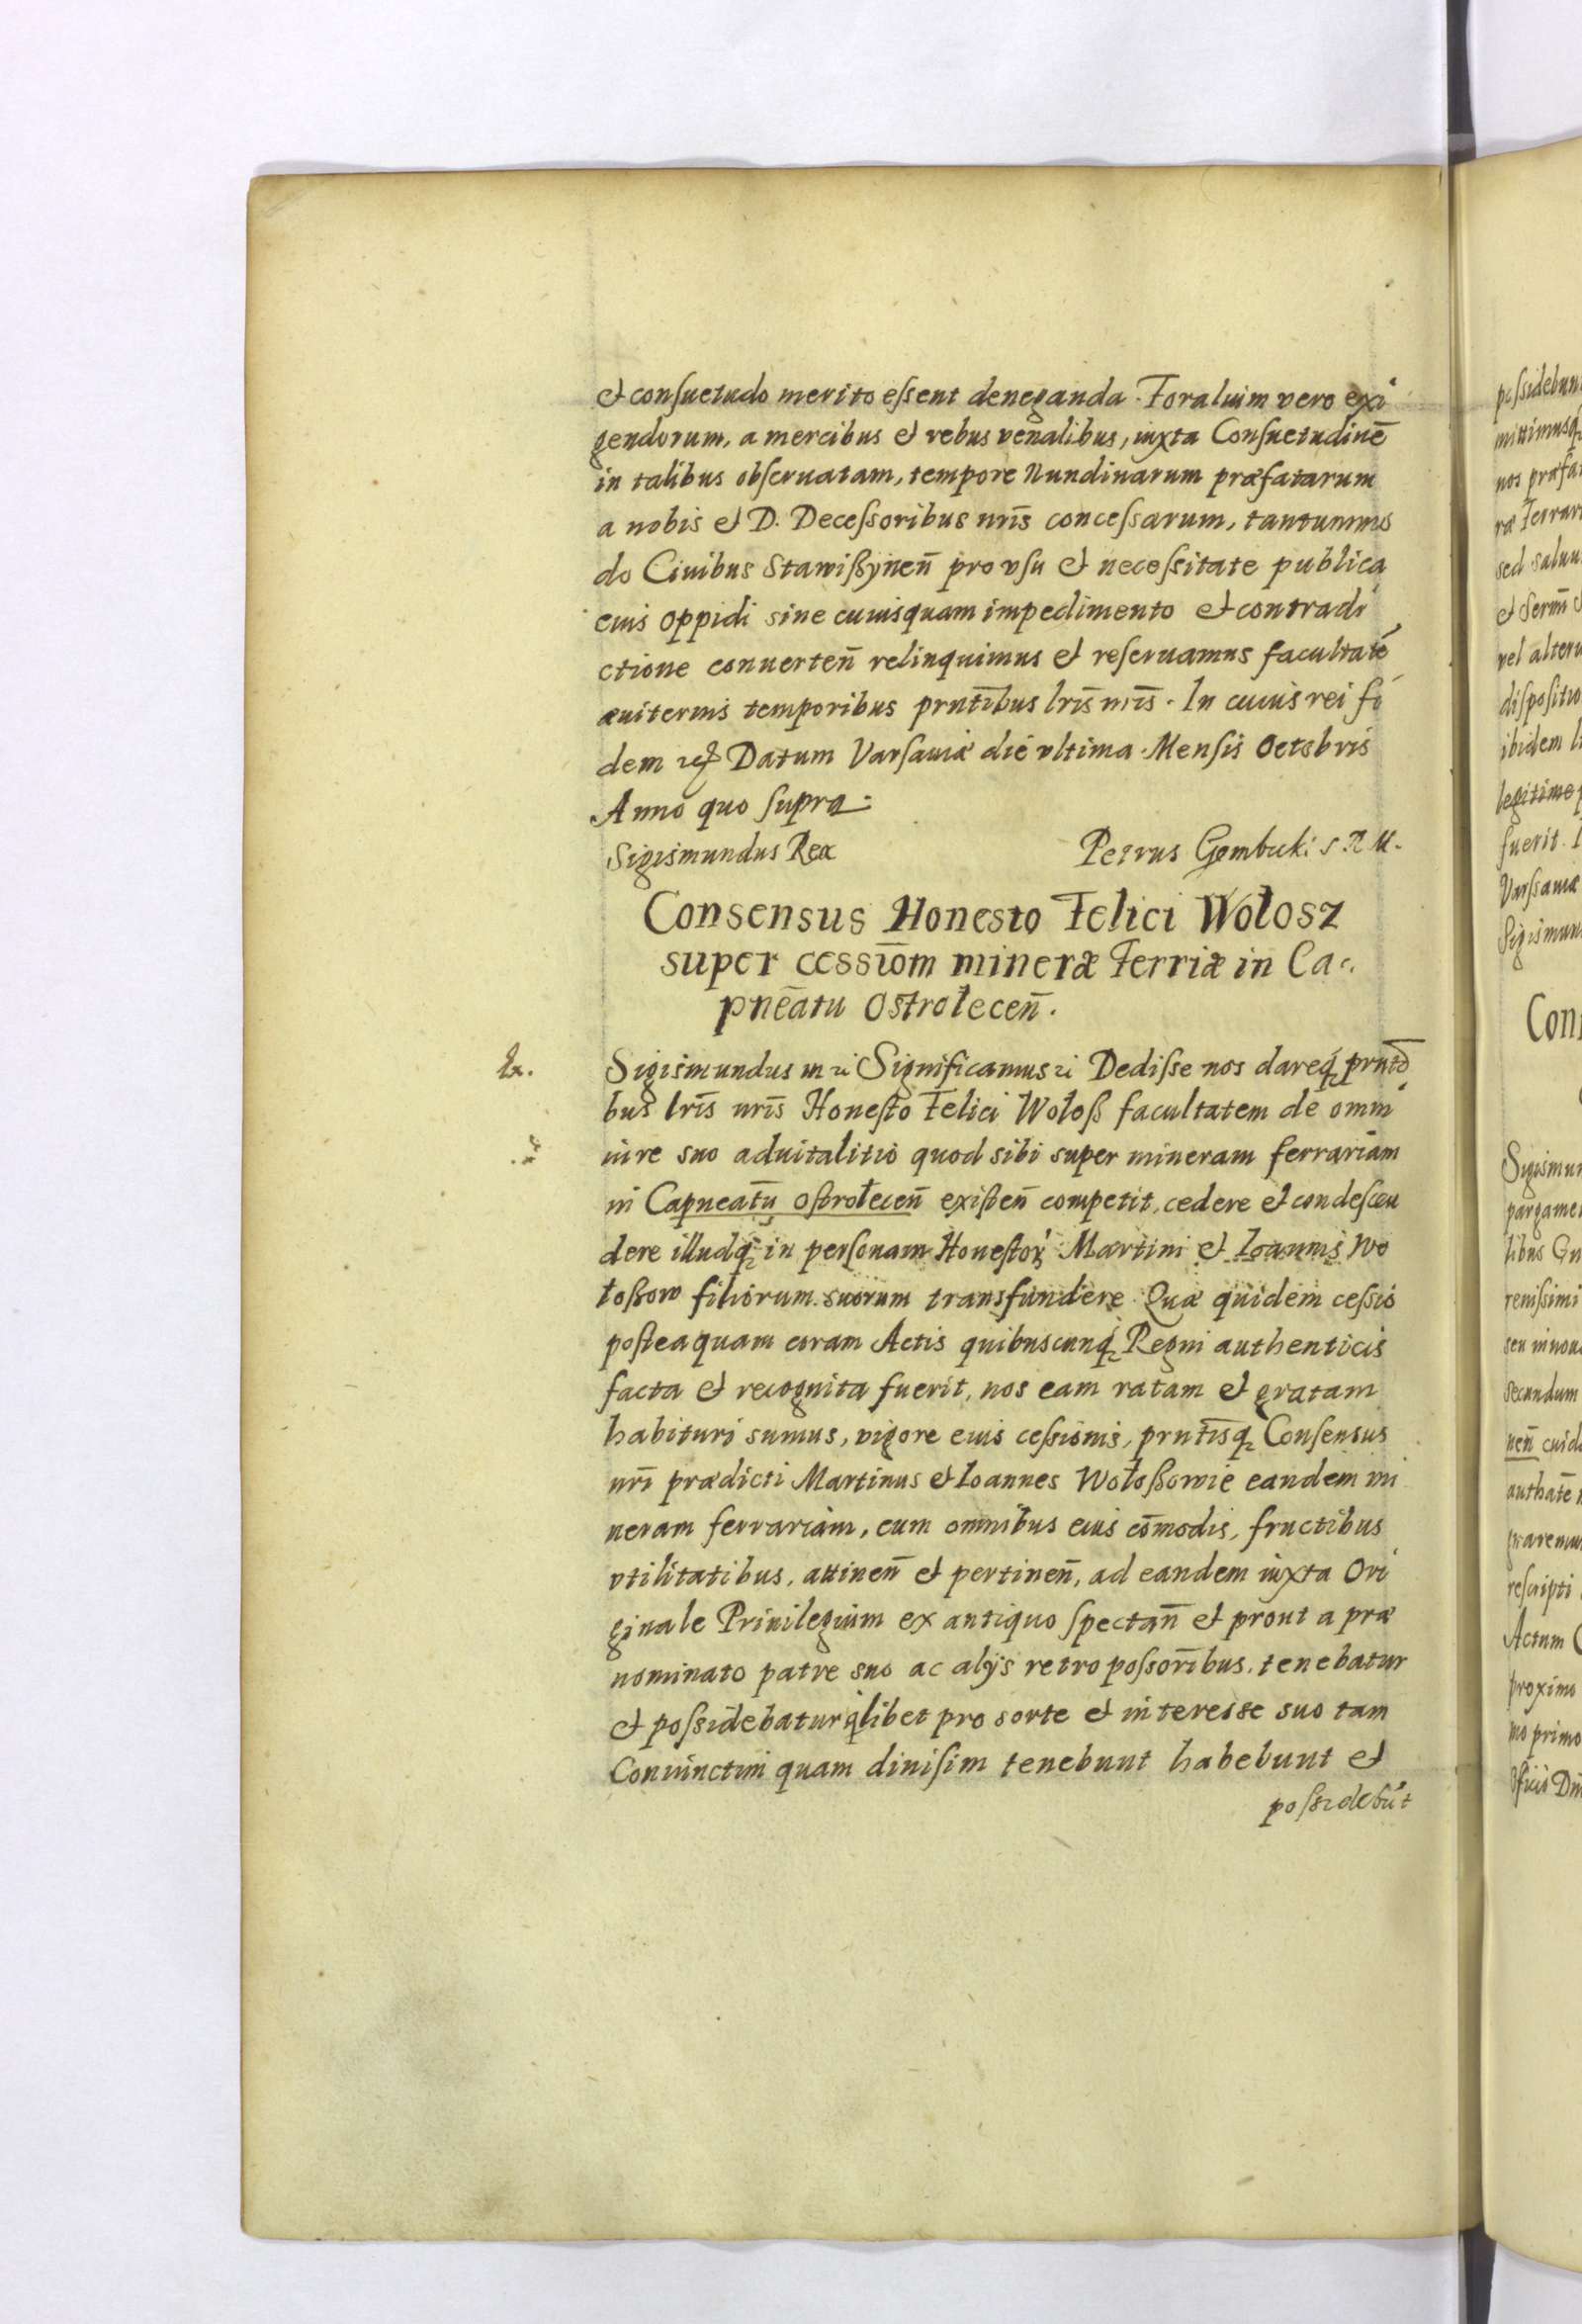 et consuetudo merito essent deneganda. Foralium vero exi
gendorum, a mercibus et rebus venalibus, iuxta Consuetudinē
in talibus obseruatam, tempore Nundinarum præfatarum
a nobis et D. Decessoribus nrīs concessarum, tantummo
do Ciuibus Stawißynen̄ pro vsu et necessitate publica
eius oppidi sine cuiusquam impedimento et contradi
ctione conuerten̄ relinquimus et reseruamus facultatē
æuiternis temporibus prntībus lrīs nrīs. In cuius rei fi
dem Datum Varsauiæ die vltima Mensis Octobris
Anno quo supra.
Sigismundus Rex
Petrus Gembicki S R M.
Consensus Honesto Felici Wołosz
super cessiōm mineræ Ferriæ in Ca
pnēatu Ostrołecen̄.
Sigismundus Significamus Dedisse nos dareq3 prntī
bus lrīs nrīs Honesto Felici Wołoß facultatem de omni
iure suo aduitalitio quod sibi super mineram ferrariam
in Capneatū ostrołecen̄ existen̄ competit, cedere et condescen
dere illudq3 in personam Honestor Martini et Ioannis Wo
łoßow filiorum suorum transfundere. Quæ quidem cessio
posteaquam coram Actis quibuscunq3 Regni authenticis
facta et recognita fuerit, nos eam ratam et gratam
habituri sumus, vigore eius cessionis, prntīsq3 Consensus
nrī prædicti Martinus et Ioannes Wołoßowie eandem mi
neram ferrariam, cum omnibus eius cōmodis, fructibus
vtilitatibus, attinen̄ et pertinen̄, ad eandem iuxta Ori
ginale Priuilegium ex antiquo spectan̄ et prout a præ
nominato patre suo ac alijs retro possorībus, tenebatur
et possidebatur qlibet pro sorte et interesse suo tam
Coniunctim quam diuisim tenebunt habebunt et
possidebūt